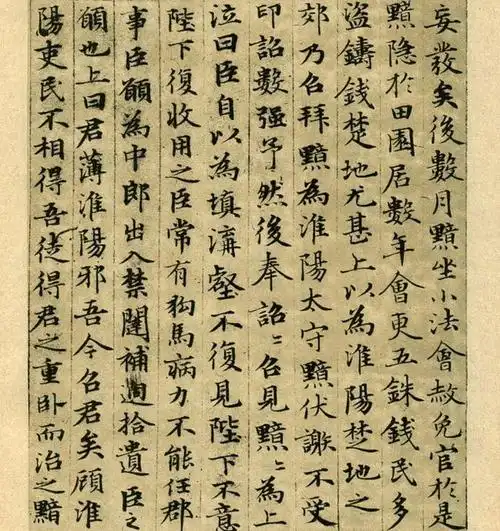 妄發矣後數月黯坐小法會赦免官於是
黯隐於田園居數年會更五銖錢民多
盜鑄錢楚地尤甚上以為淮陽楚地之
郊乃召拜黯為淮陽太守黯伏謝不受
印詔數强予然後奉詔〻召見黯〻為上
泣曰臣自以為填溝壑不復見陛下不意
陛下復收用之臣常有狗馬病力不能任郡
事臣願為中郎出入禁闥補過拾遺臣之
願也上曰君薄淮陽邪吾今召君矣顧淮
陽吏民不相得吾徒得君之重卧而治之黯